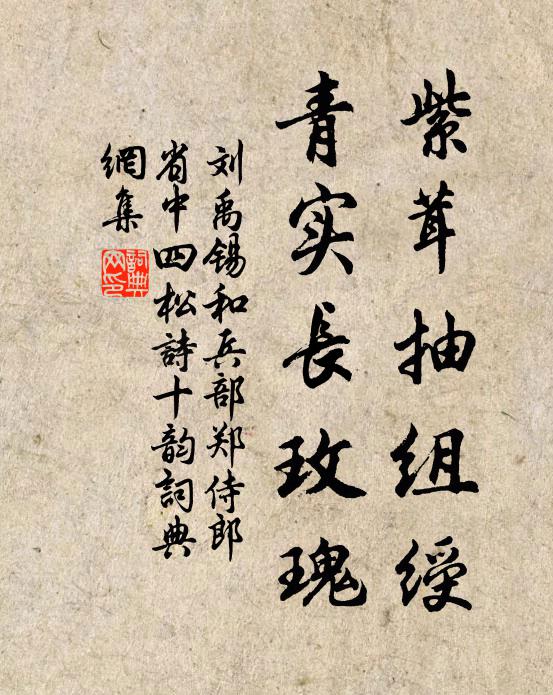 紫茸抽组綬
青实長玫瑰
刘禹锡和兵部郑侍郎
省中四松詩十韵詞典
網集
詞典网印